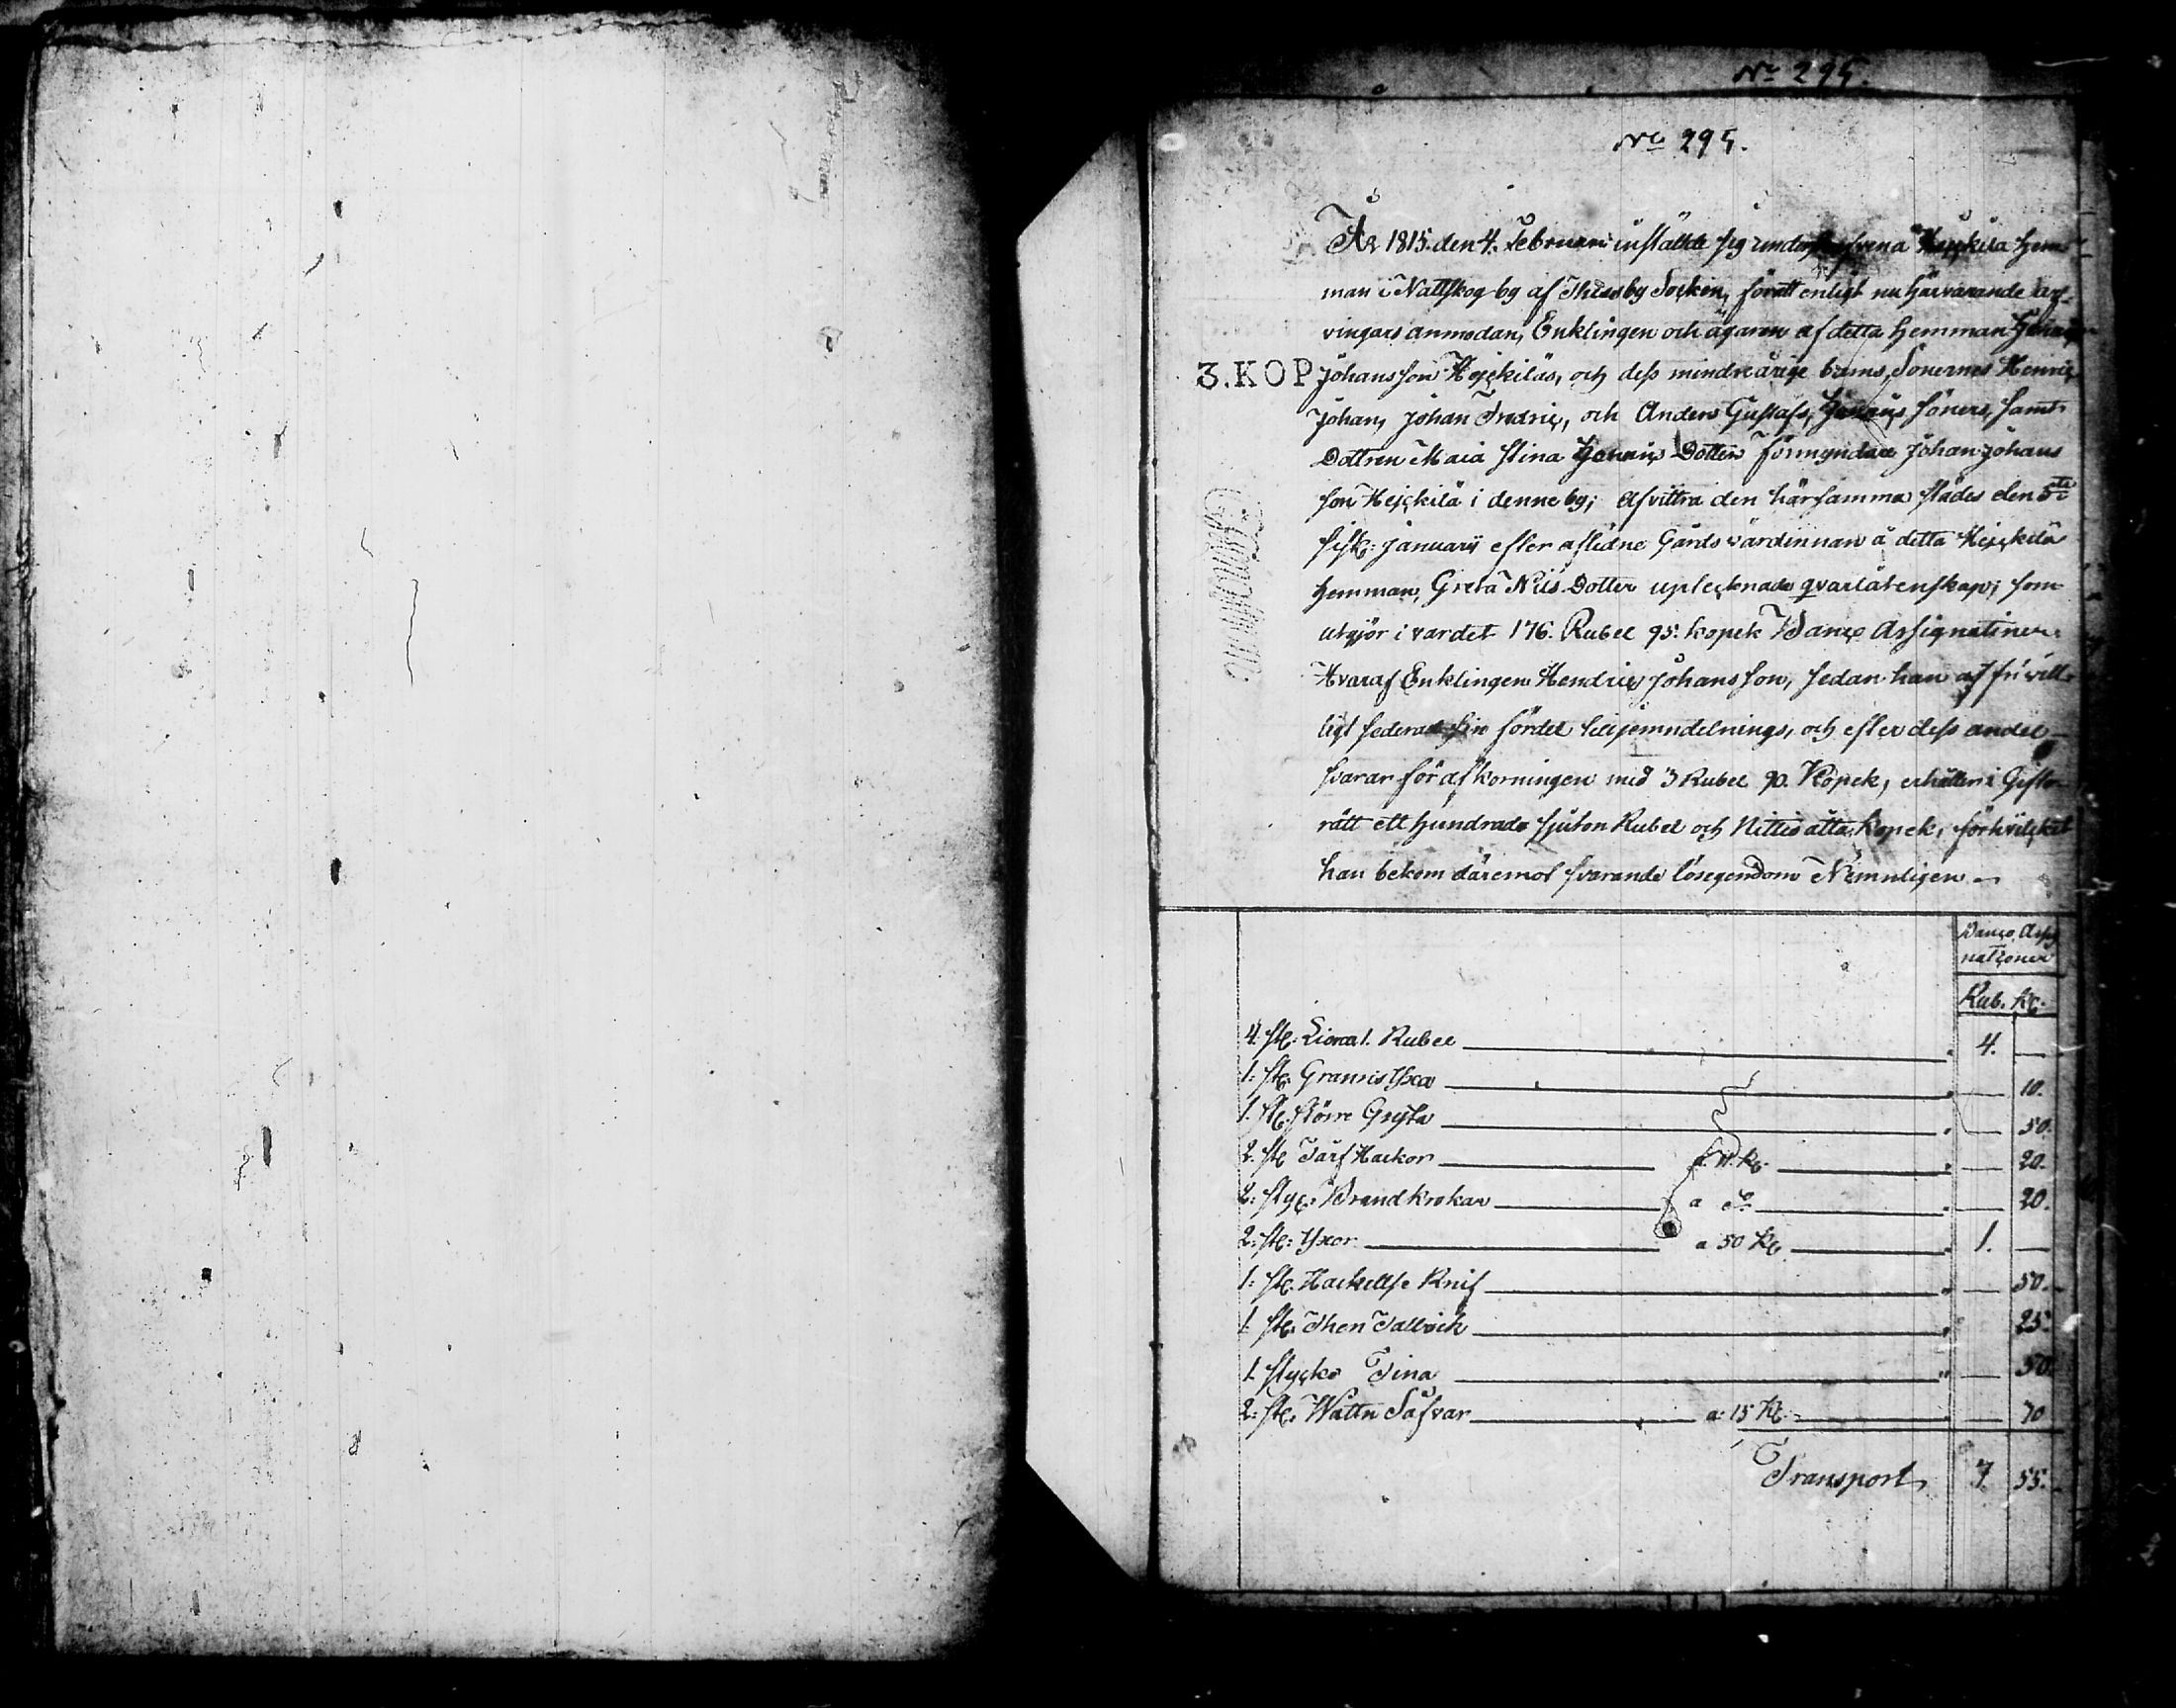 No 295.
No 295.
År 1815 den 4. Februarii inställde sig undertskrefvena Hejckilä Hem
man i Nattskog by af Thusby Socken, föratt enligt nu härvarande arf-
vingars anmodan, Enklingen och ägaren af detta Hemman Henric
3.KOP
Johansson Hejckiläs, och dess mindreårige barns, Sönernes Henric
Johan, Johan Fredric, och Anders Gustafs, Henrics söners, samt
Dottren Maia Stina Henrics Dotters Förmyndare Johan Johans
son Hejckilä i denne by; Afvittra den härsamma städes den 5te
sistl: Januarii efter aflidne Gårds värdinnan å detta Hejckilä
Hemman, Greta Nils Dotter uptecknade qvarlåtenskap; som
utgjör i vardet 176. Rubel 95. kopek Banco Assignationer.
Hvaraf Enklingen Hendric Johansson, sedan han af friwill-
ligt sin fördel till jemndelnings, och efter dess andel
svarar för afkorningen med 3 Rubel 90. Kopek, erhåller i Gifto-
rätt ett hundrade sjuton Rubel och Nittio åtta Kopek, förhvilcket
han bekom däremot svarande lösegendom Nemnligen -
Banco Assig
nationer
Rub. Kc.
4. st: Liorar 1. Rubel 4. —
1. st: Granris Yxa — 10.
1. st: större Gryta — 50.
2. st Tarf Hackor a 10 Kc. — 20.
2: styc: Brand krokar a do — 20.
2: st: Yxor a 50 Kc 1. —
1: st: Hackellse Knif — 50.
1: st: Then Tallrick — 25.
1 stycke Tina — 50.
2: st: Wattn Såfvar a: 15 Kc — 30
Transport 7. 55.